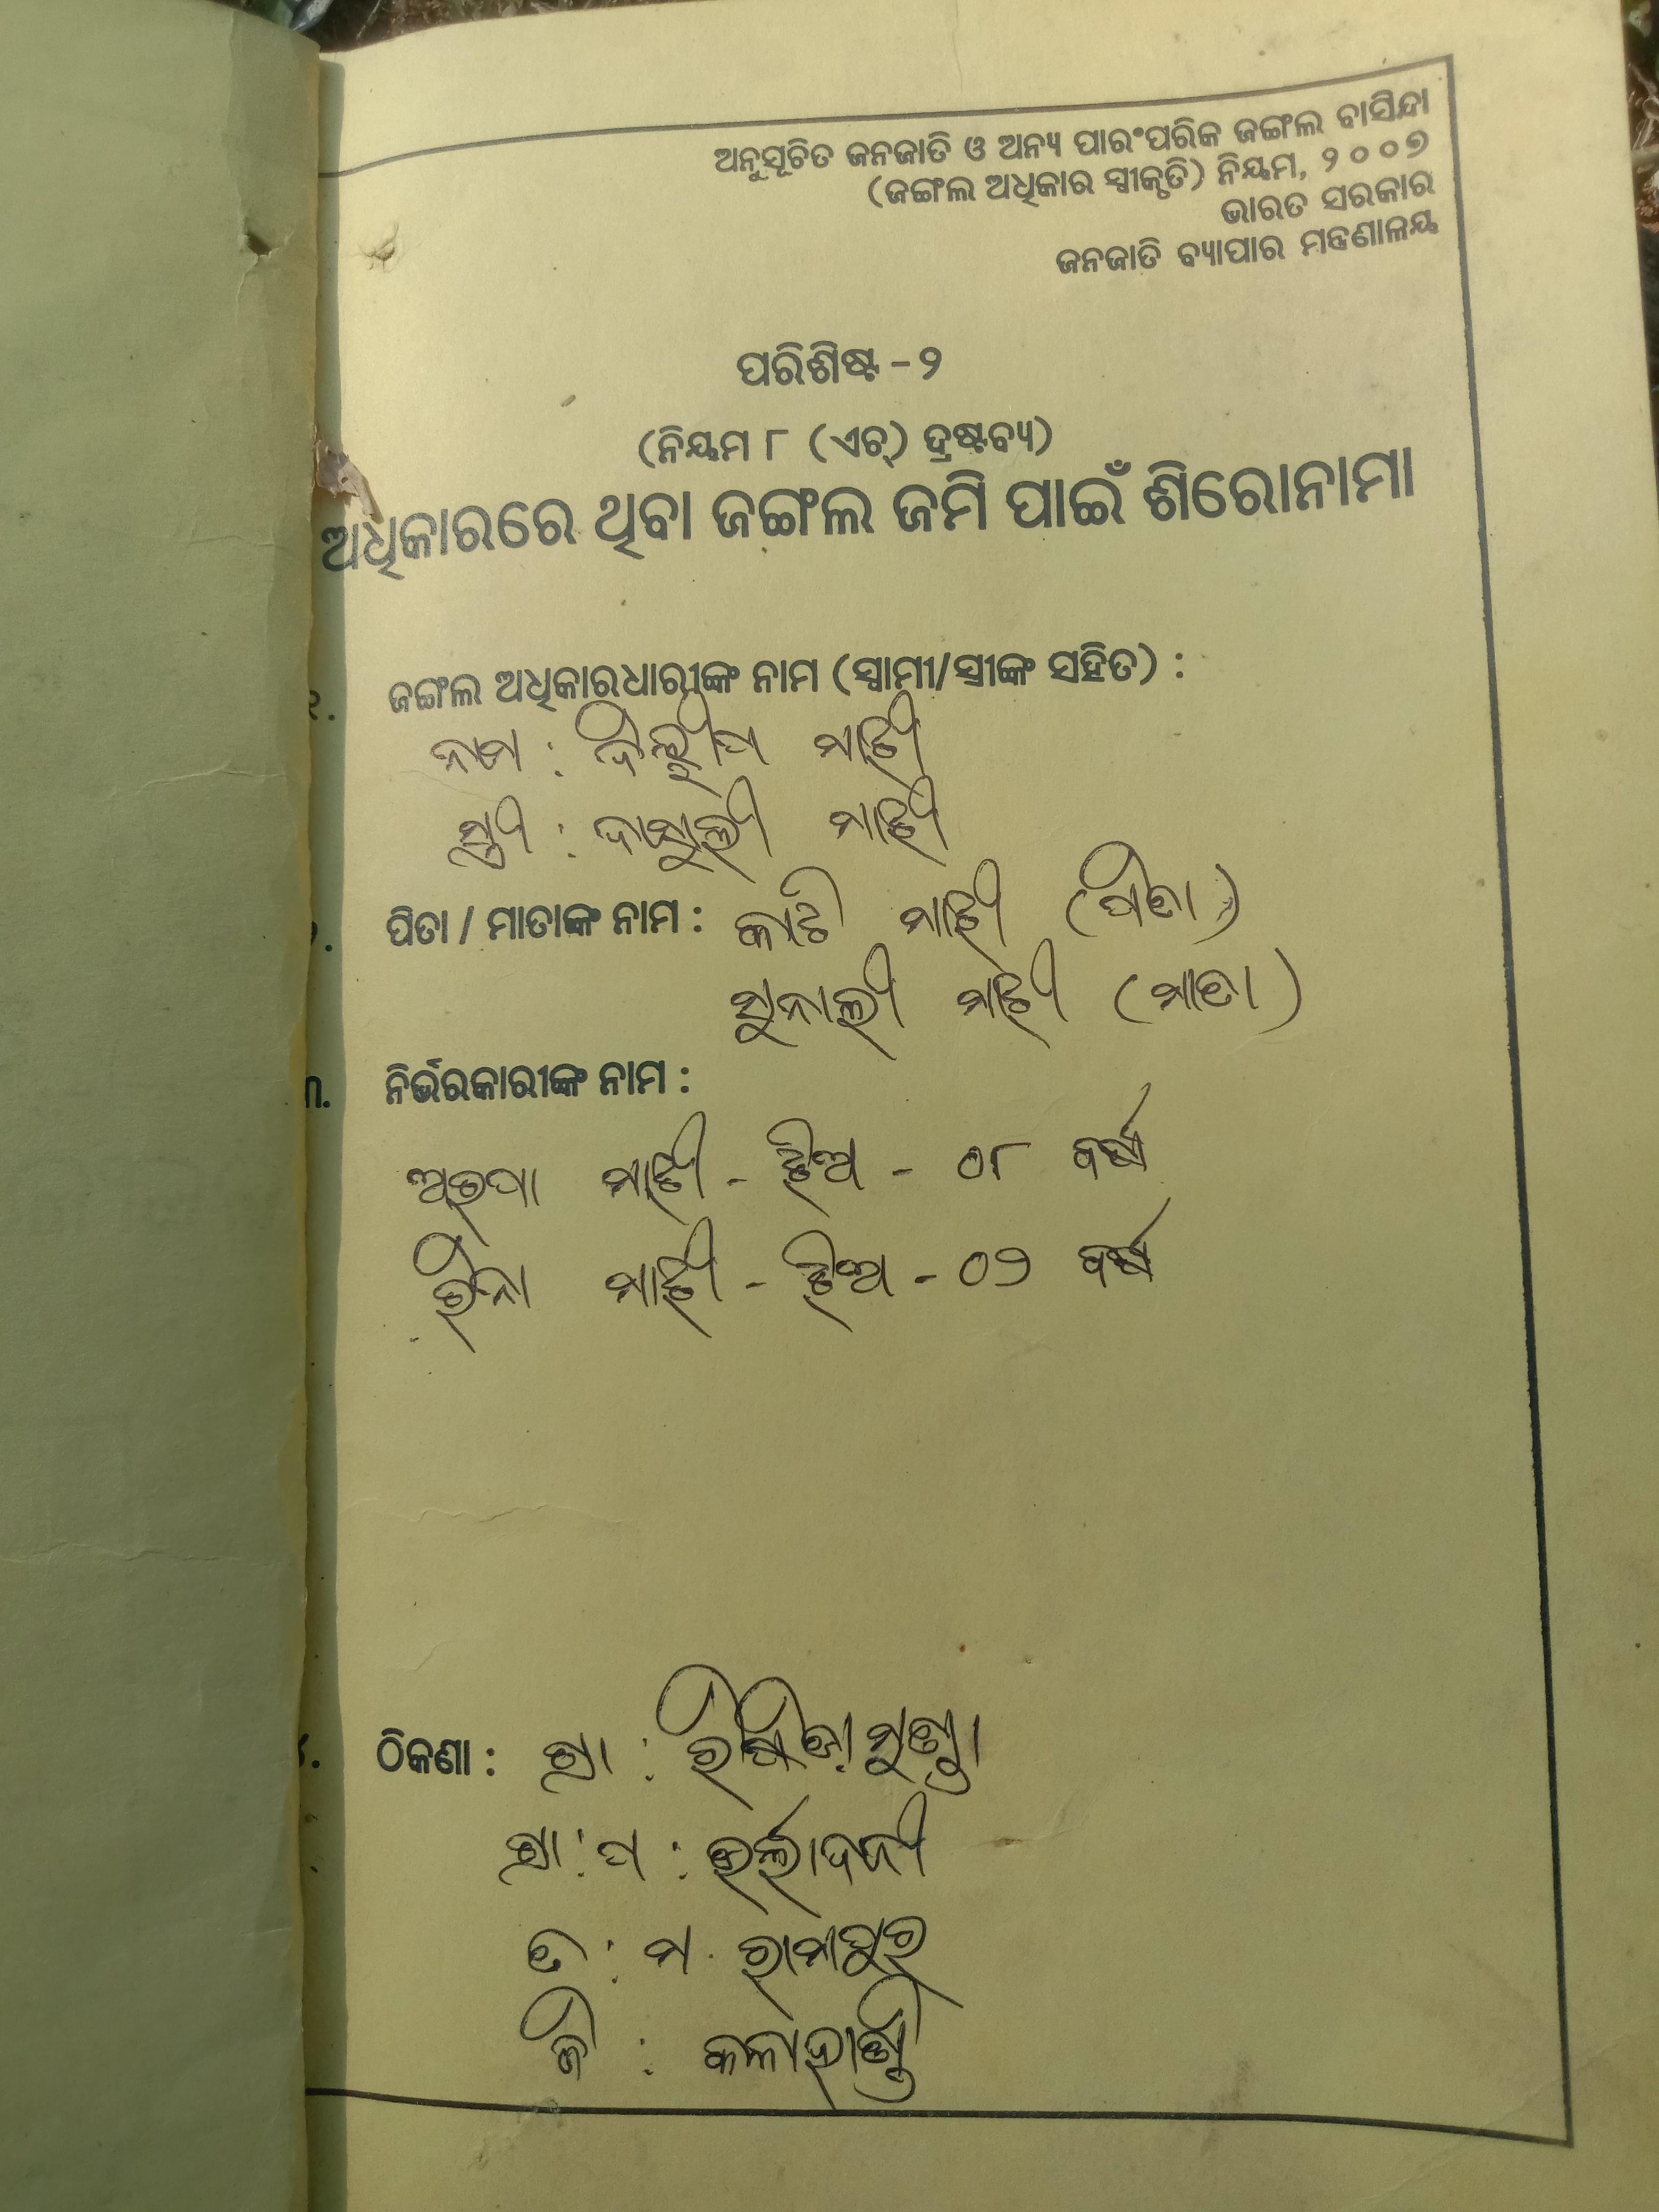 ଅନୁସୂଚିତ ଜନଜାତି ଓ ଅନ୍ୟ ପାରଂପରିକ ଜଙ୍ଗଲ ବାସିନ୍ଦା
(ଜଙ୍ଗଲ ଅଧିକାର ସ୍ୱୀକୃତି) ନିୟମ, ୨୦୦୭
ଭାରତ ସରକାର
ଜନଜାତି ବ୍ୟାପାର ମନ୍ତ୍ରଣାଳୟ
ପରିଶିଷ୍ଟ -୨
(ନିୟମ ୮ (ଏଚ୍) ଦ୍ରଷ୍ଟବ୍ୟ)
ଅଧିକାରରେ ଥିବା ଜଙ୍ଗଲ ଜମି ପାଇଁ ଶିରୋନାମା
୧. ଜଙ୍ଗଲ ଅଧିକାରଧାରୀଙ୍କ ନାମ (ସ୍ୱାମୀ/ସ୍ତ୍ରୀଙ୍କ ସହିତ) :
ନାମ : ଦିଲ୍ଲୀପ ମାଝୀ
ସ୍ତ୍ରୀ : ମାଝୀ
ପିତା / ମାତାଙ୍କ ନାମ : ମାଝୀ (ପିତା)
ସୁନାଲୀ ମାଝୀ (ମାତା)
୩. ନିର୍ଭରକାରୀଙ୍କ ନାମ :
ମାଝୀ - ଝିଅ - ୦୮ ବର୍ଷ
ରିନା ମାଝୀ - ଝିଅ - ୦୨ ବର୍ଷ
ଠିକଣା : ଗ୍ରା :
ଗ୍ରା : ପ :
ତ : ମ. ରାମପୁର
ଜି : କଳାହାଣ୍ଡି